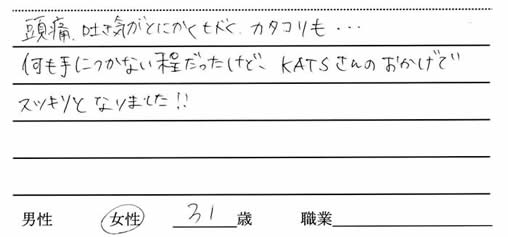 頭痛、吐き気がとにかくひどく、カタコリも・・・
何も手につかない程だったけど、KATSさんのおかげで
スッキリとなりました!!
男性 女性 31歳 職業